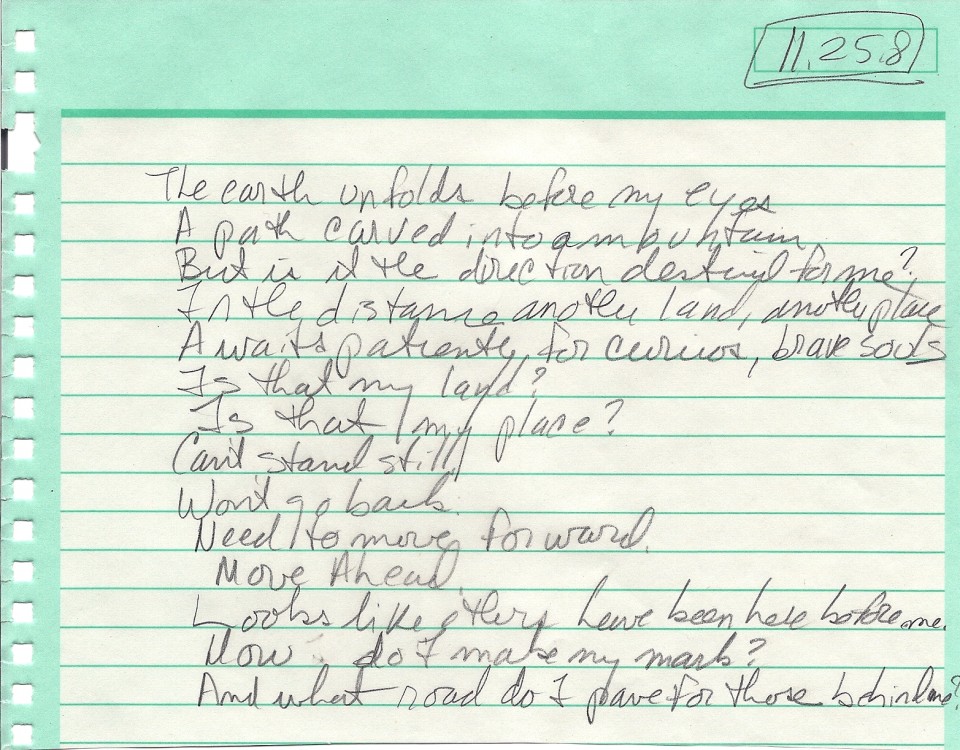 11.25.8
The earth unfolds before my eyes
A path carved into a mountain.
But is it the direction destined for me?
In the distance another land, another place
Awaits patiently for curious, brave souls
Is that my land?
Is that my place?
Can't stand still
Won't go back.
Need to move forward.
Move Ahead.
Looks like others have been here before me.
How do I make my mark?
And what road do I pave for those behind me?